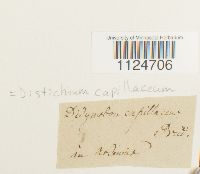 University of Minnesota Herbarium
1124706
=Distichium capillaceum
Didymodon capillaceus
Brid.
in Ardenna